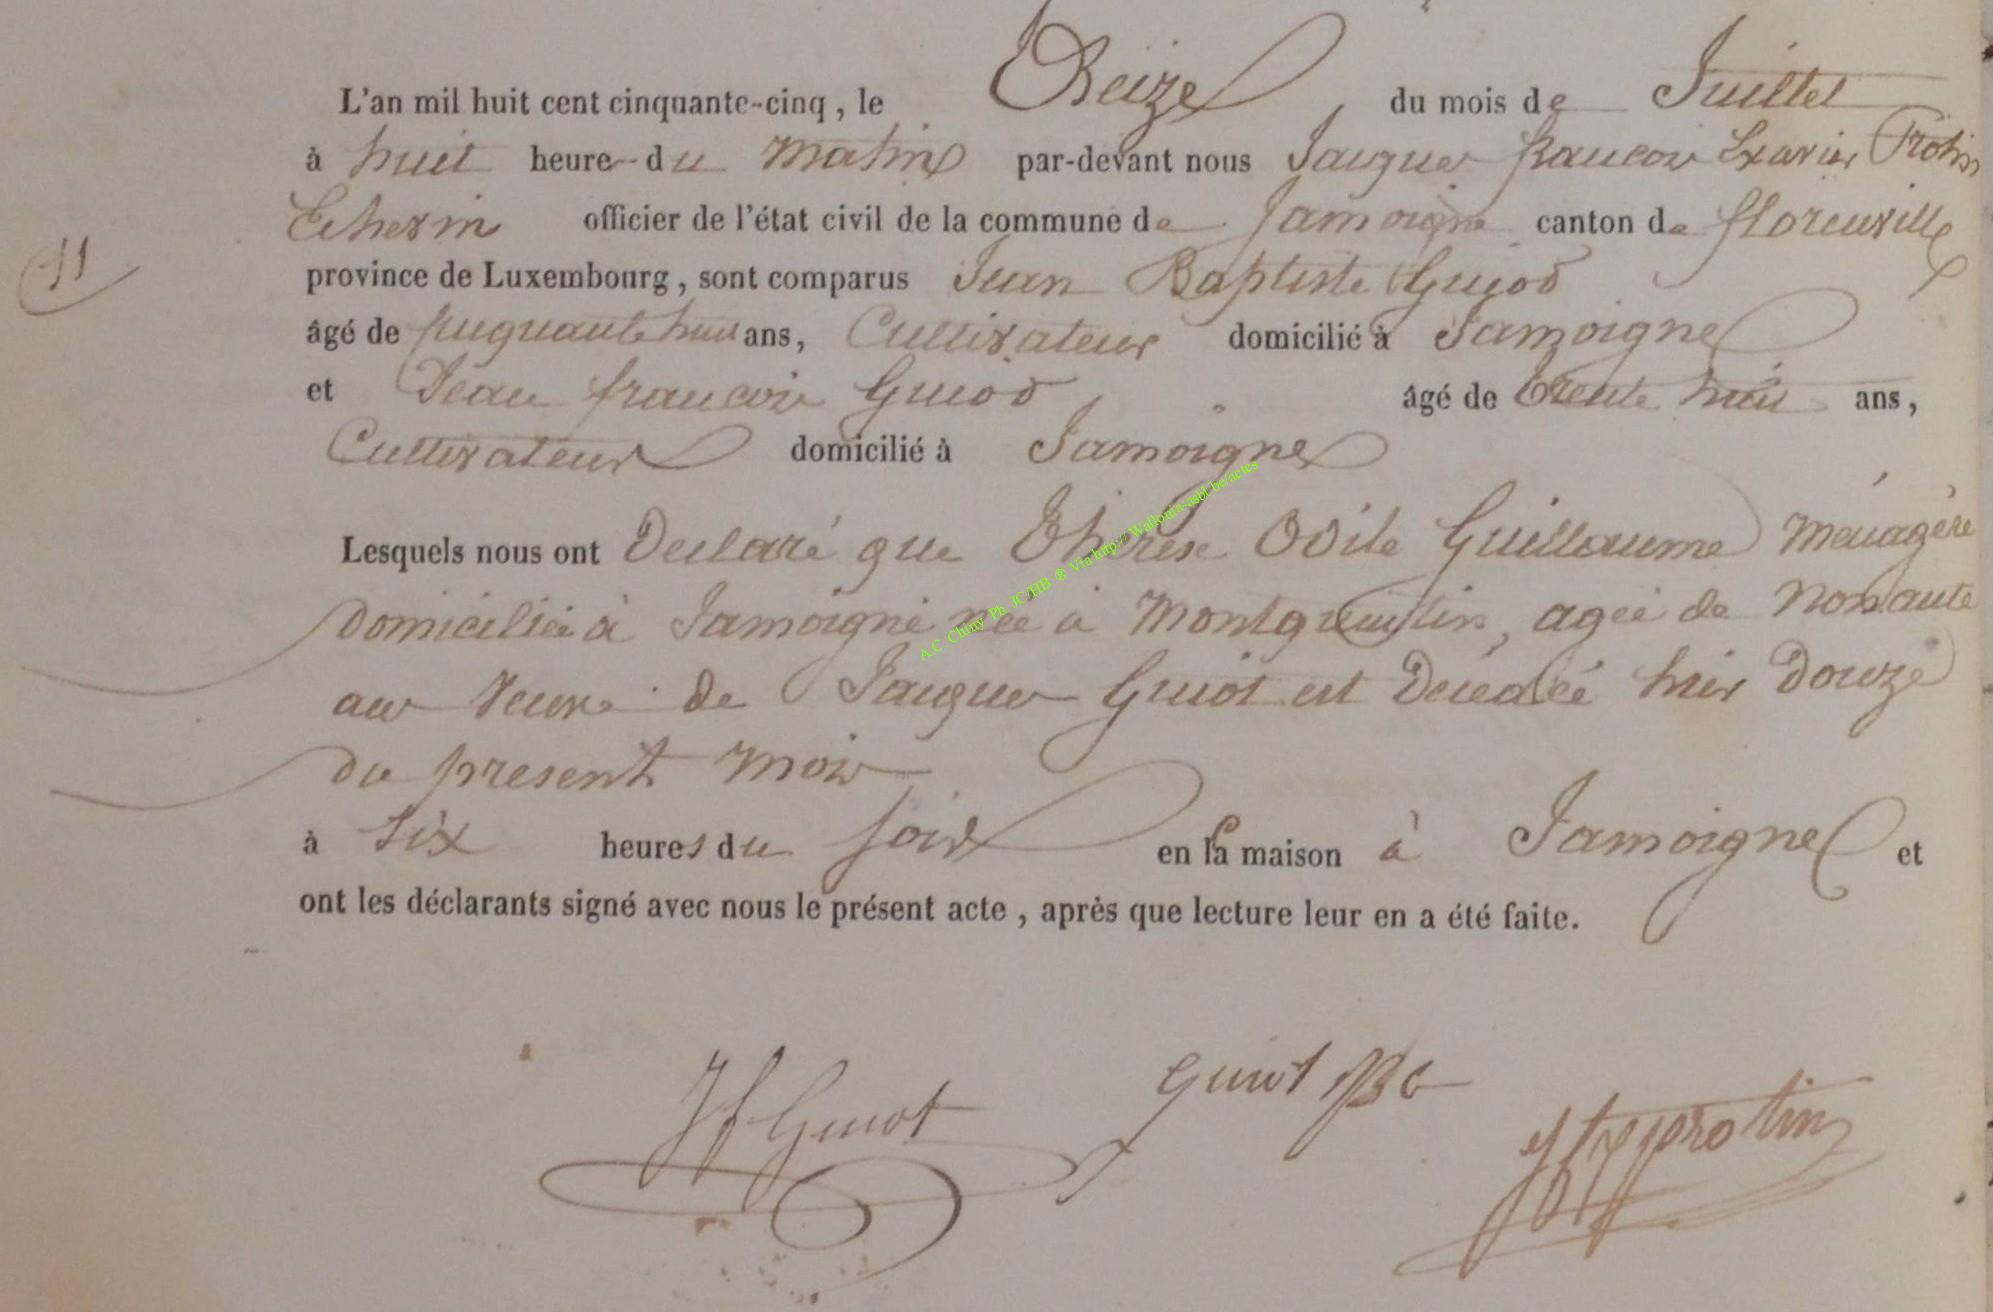 L'an mil huit cent cinquante-cinq, le Treize du mois de Juillet
à huit heure du Matin par-devant nous Jacques francois Exavier Protin
Echevin officier de l'état civil de la commune de Jamoigne canton de florenville
11
province de Luxembourg, sont comparus Jean Baptiste Guiot
âgé de cinquante huit ans, Cultivateur domicilié à Jamoigne
et Jean francois Guiot âgé de trente huit ans,
Cultivateur domicilié à Jamoigne
Lesquels nous ont Declaré que Thérèse Odile Guillaume Ménagère
domiciliée à Jamoigne née à Montquintin, agée de Nonante
ans Veuve de Jacques Guiot est Décédée hier Douze
du present mois
à Six heures du soir en sa maison à Jamoigne et
ont les déclarants signé avec nous le présent acte, après que lecture leur en a été faite.
A.C. Chiny Ph. JC/HB ® Via http://Wallonia-asbl.be/actes
JfGuiot Guiot JB protin